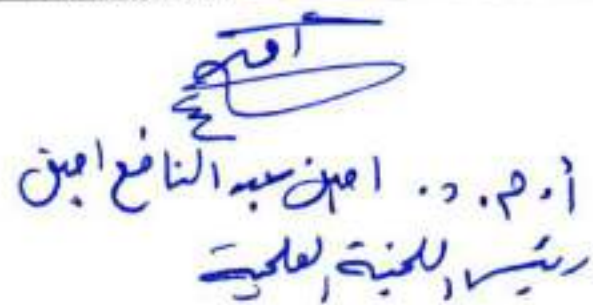 أ.م.د. امين عبد النافع امين
رئيس اللجنة العلمية